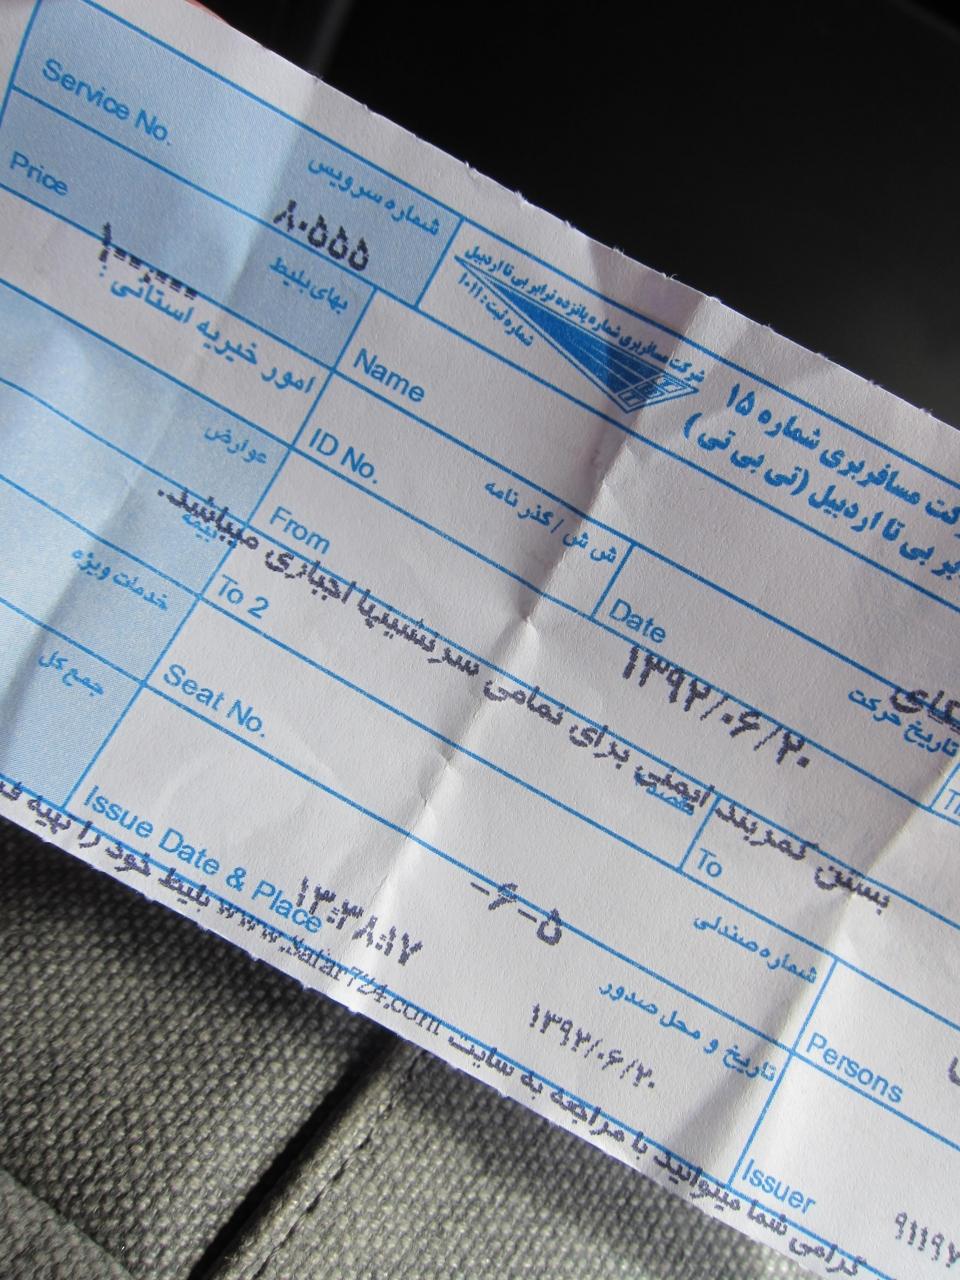 Service No.
شماره سرویس
۸۰۵۵۵
Price
بهای بلیط
۱۰۰,۰۰۰
امور خیریه استانی :
شرکت مسافربری شماره پانزده ترابر بی تا اردبیل
شماره ثبت : ۱۰۱۱
مسافربری شماره ۱۵
بی تا اردبیل (تی بی تی)
Name
ID No.
ش ش / گذرنامه
عوارض
From
Date
۱۳۹۲/۰۶/۲۰
تاریخ حرکت
بیمه
To 2
بستن کمربند ایمنی برای تمامی سرنشینها اجباری میباشد.
مقصد
To
خدمات ویژه
Seat No.
شماره صندلی
-۶-۵
جمع کل
Issue Date & Place
۱۳:۳۸:۱۷
تاریخ و محل صدور
۱۳۹۲/۰۶/۲۰
Persons
Issuer
گرامی شما میتوانید با مراجعه به سایت www.Safar724.com بلیط خود را تهیه